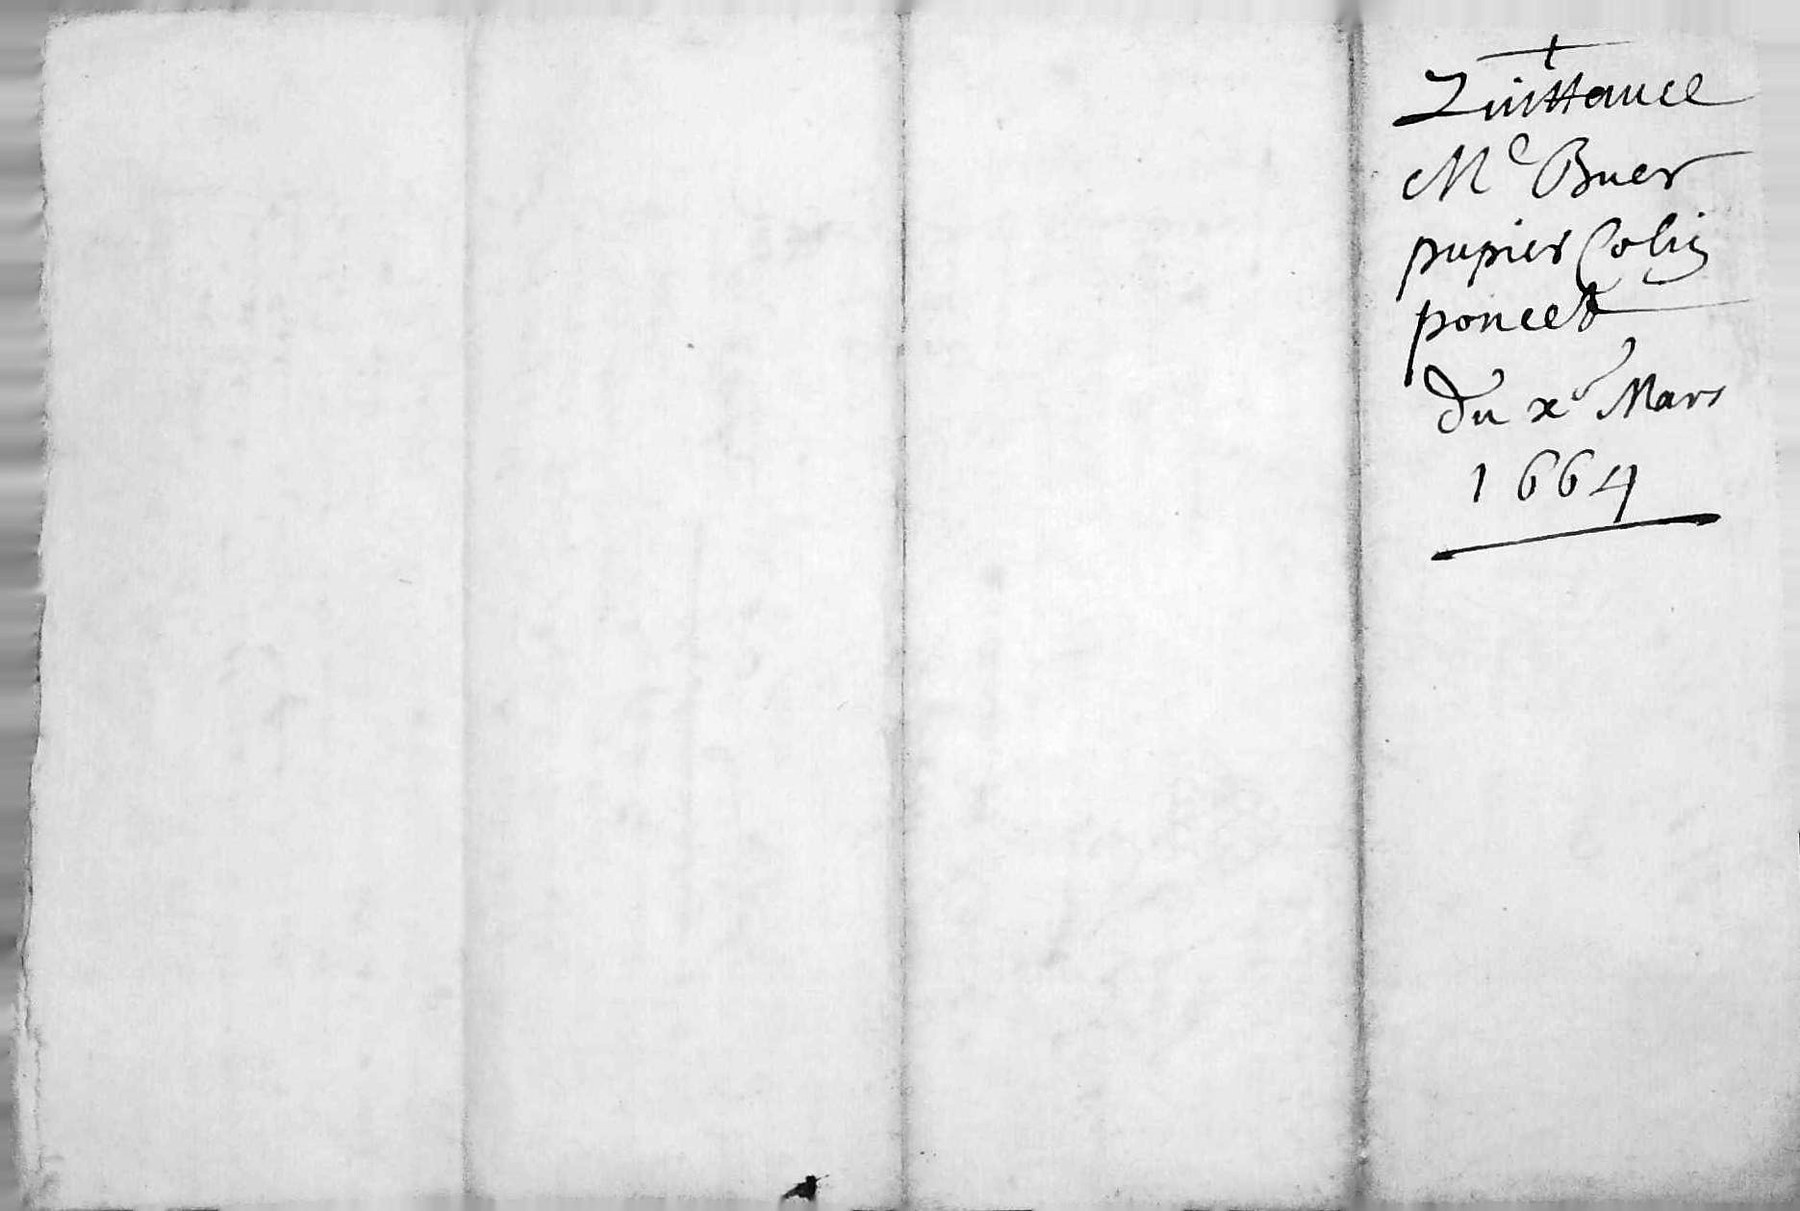 Quittance
Me Buer
pupier Colin
poncet
du xe Mars
1664